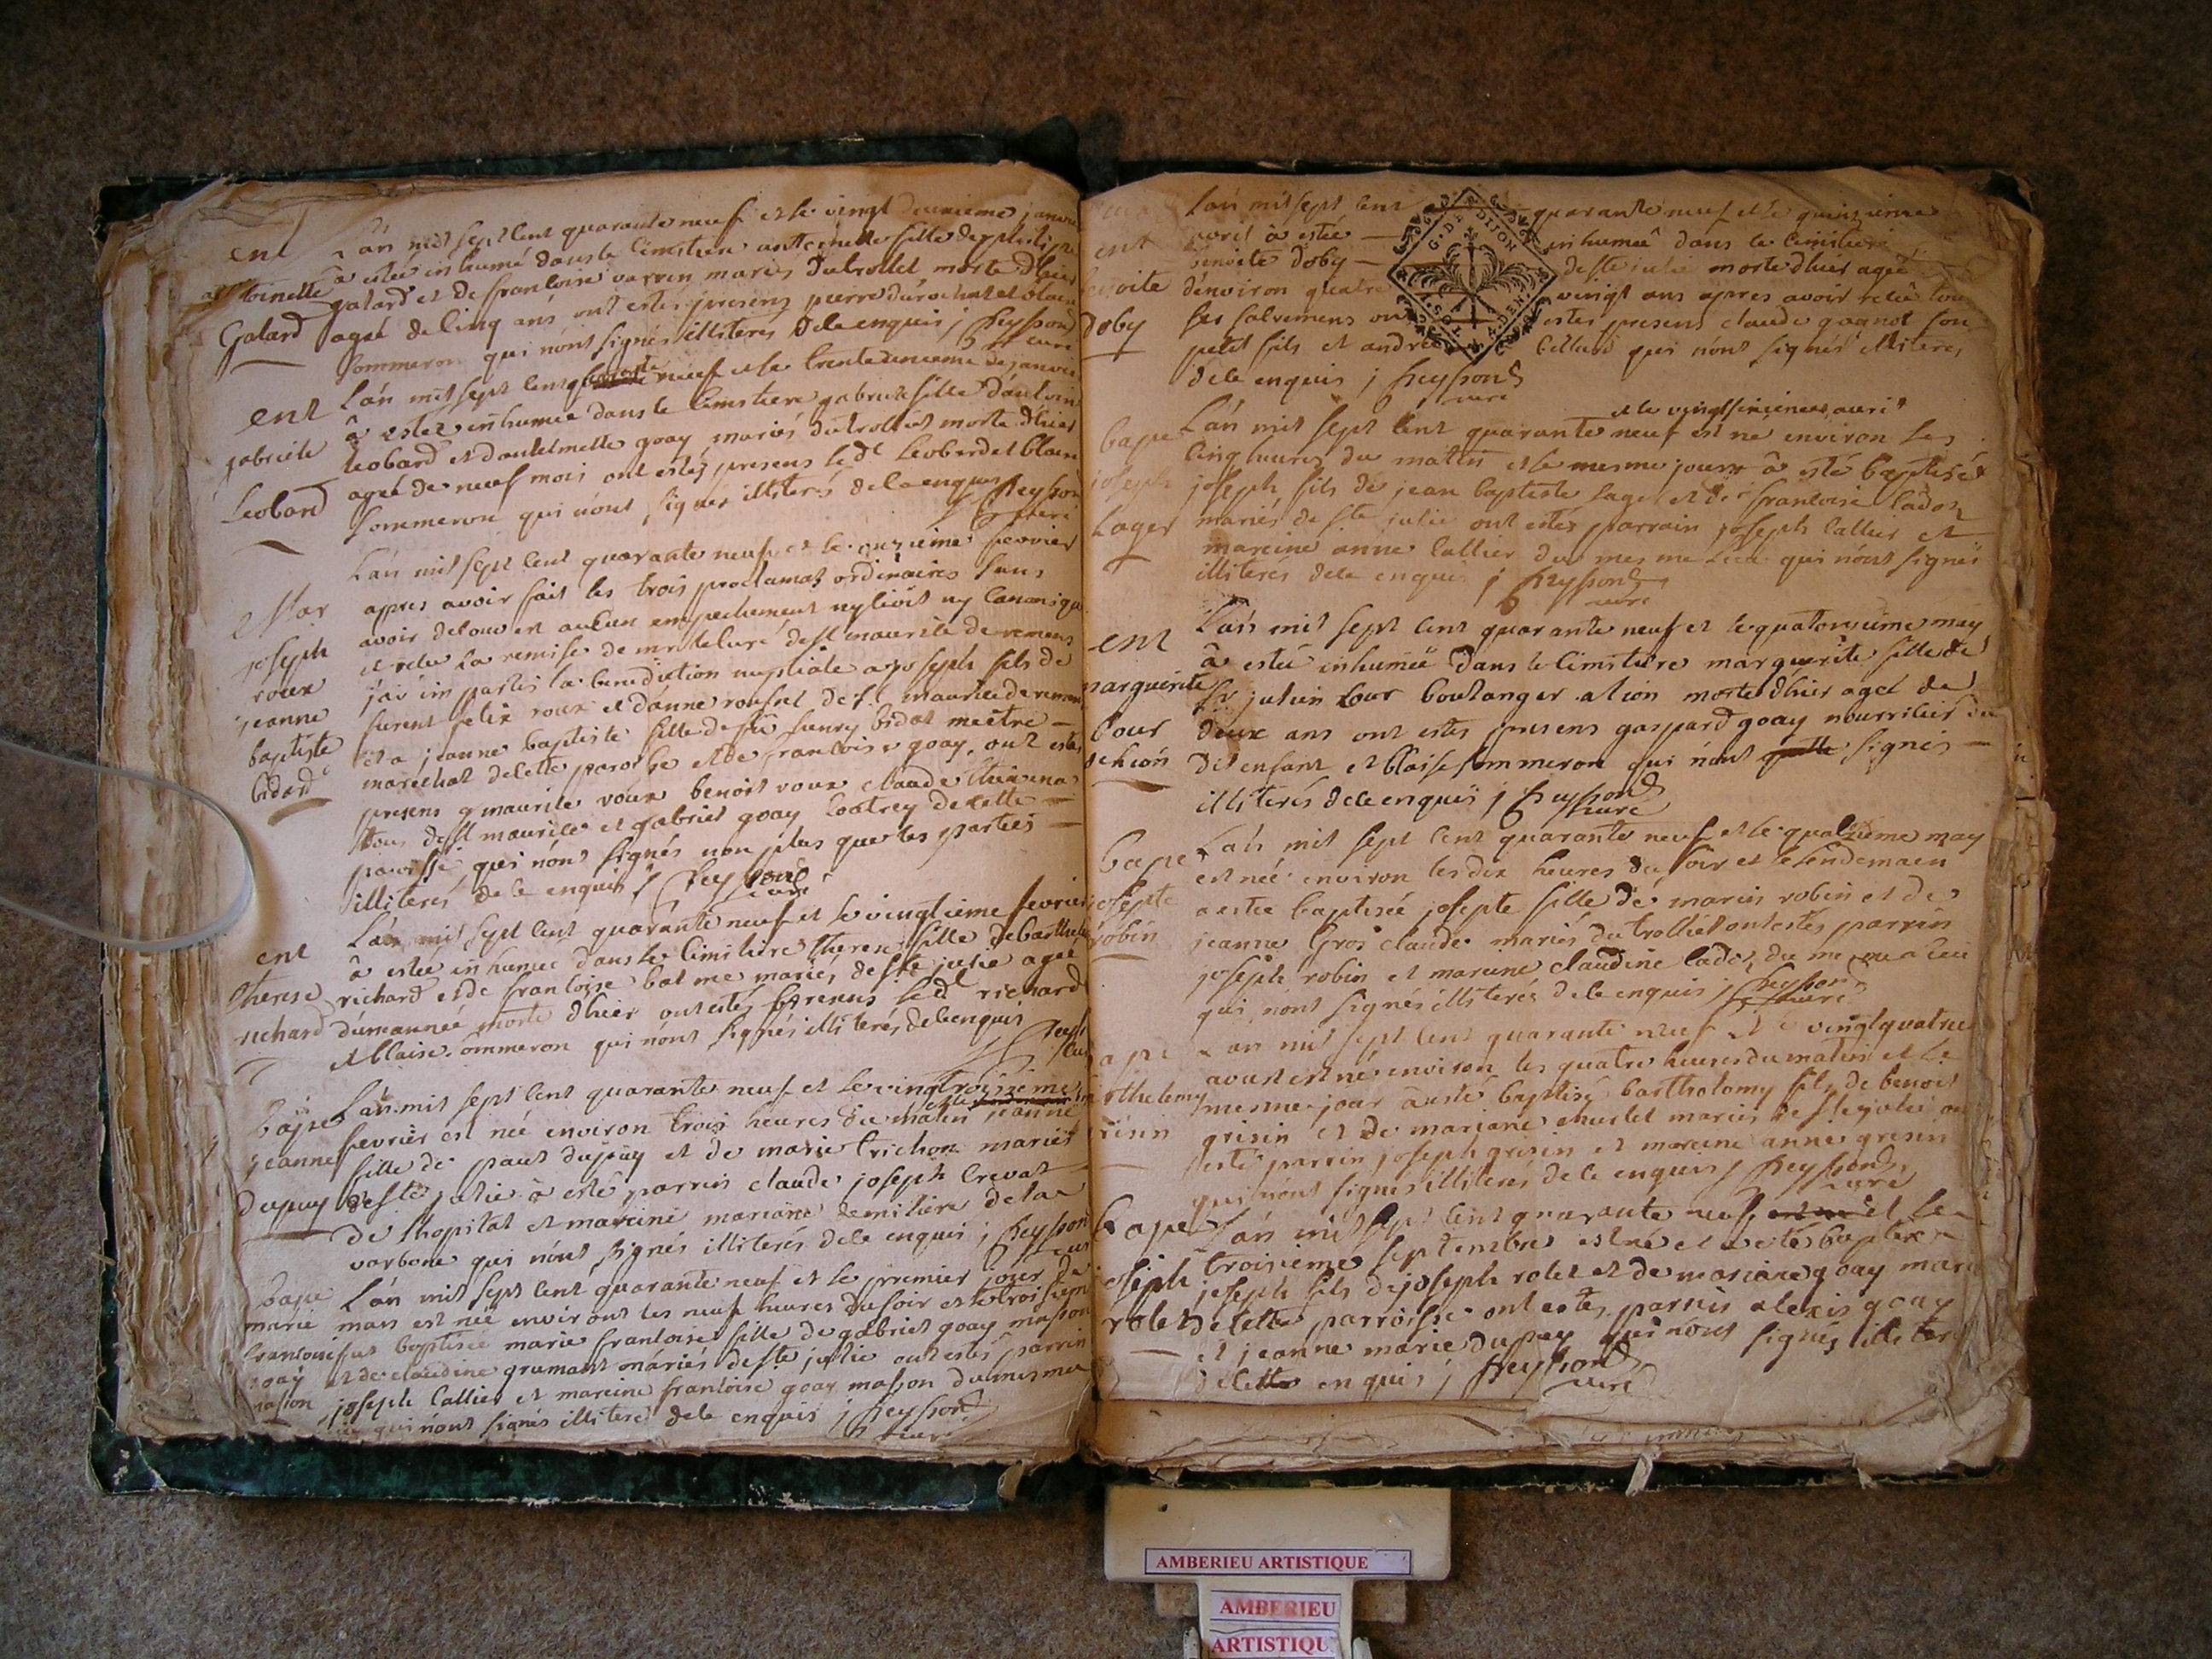 ent L'an mil sept cent quarante neuf et le vingt deuxieme janvier
a estée inhumé dans le cimetiere anttoinette fille de philipe
anttoinette galard et de francoise varren mariés du trolliet morte dhier
Galard agée de cinq ans ont estes presens pierre durochat et blaise
sommeron qui n'ont signés illiteres de ce enquis j Freyssond
curé
L'an mil sept cent quarante neuf et le trentedeuxieme de janvier
ent à estez inhumée dans le cimetiere gabriele fille d'antoine
gabriele leobard et d'anthelmette goay mariés du trolliet morte dhier
Leobard agée de neuf mois ont estés presens led leobard et blaise
sommeron qui n'ont signés illiterés de ce enquis Freyssond
curé
L'an mil sept cent quarante neuf et le onzieme fevrier
Mar apres avoir fait les trois proclamaõ ordinaires sans
joseph avoir decouvert aucun empechement ny civil ny canonique
roux et vëu la remise de mr le curé de st maurice de remens
jeanne j'ay imparti la benediction nuptiale a joseph fils de
baptiste furent felix roux et d'anne roussel de st maurice de remens
bidard et a jeanne baptiste fille de fu henry bidat meître
marechal de cette paroisse et de francoise goay, ont estes
presens maurice roux benoit roux claude
tous de st maurice et gabriel goay de cette
paroisse qui n'ont signés non plus que les parties
illiterés de ce enquis j Freyssond
curé
L'an mil sept cent quarante neuf et le vingtieme fevrier
ent à estée inhumée dans le cimetiere therese fille de barthelemy
therese richard et de francoise balme mariés de ste julie agée
richard d'une année morte dhier ont estés presens led richard
et blaise sommeron qui n'ont signés illiterés de ce enquis
L'an mil sept cent quarante neuf et le vingtroisieme
bape fevrier est née environ trois heures du matin jeanne
jeanne fille de paul dupuy et de marie trichon mariés
dupuy de ste julie à esté parrin claude joseph crevat
de lhopital et mareine mariane demiliere de la
varbone qui n'ont signés illiterés de ce enquis j Freyssond
curé
bape L'an mil sept cent quarante neuf et le premier jour de
marie mars est née environt les neuf heures du soir et le troisieme
francoise fut baptisée marie francoise fille de gabriel goay masson
goay et de claudine grumant mariés de ste julie ont estés parrin
masson joseph callier et mareine francoise goay masson du mesme
lieu qui n'ont signés illiteré de ce enquis j Freyssond
curé
L'an mil sept cent quarante neuf et le quinzieme
G. DE DIJON
ent avril à estée inhumée dans le cimetiere
benoite benoite doby de ste julie morte dhier agée
doby d'environ quatre vingt ans apres avoir recëu tous
ses sacremens ont estes presens claude gagnot son
petit fils et andré callier qui n'ont signés illiteres
de ce enquis j Freyssond
curé
et le vingtsixieme avril
bape L'an mil sept cent quarante neuf est ne environ les
cinq heures du matin et le mesme jour à esté baptisé
joseph joseph fils de jean baptiste lager et de francoise cadoz
Lager mariés de ste julie ont estéz parrain joseph callier et
mareine anne callier du mesme lieu qui n'ont signés
illiterés de ce enquis j Freyssond
curé
L'an mil sept cent quarante neuf et le quatorzieme may
ent à estée inhumée dans le cimetiere marguerite fille de
marguerite sr julien bour boulanger a lion morte dhier agée de
bour deux ans ont estes presens gaspard goay nourricier du
de lion d enfant et blaise sommeron qui n'ont signés
illiterés de ce enquis j Freyssond
curé
bape L'an mil sept cent quarante neuf et le quatzieme may
est née environ les dix heures du soir et le lendemain
josepte a estée baptisée josepte fille de marin robin et de
robin jeanne Gros claude mariés du trolliet ont estés parrin
joseph robin et mareine claudine cadoz du mesme lieu
qui n'ont signés illiterés de ce enquis j Freyssond
curé
bape L'an mil sept cent quarante neuf et le vingtquatre
avust est né environ les quatre heures du matin et le
barthelemy mesme jour à esté baptisé bartholomy fils de benoit
grisin grisin et de mariane mariés de ste julie on
esté parrin joseph grisin et mareine anne grisin
qui n'ont signés illiterés de ce enquis j Freyssond
curé
bape L'an mil sept cent quarante neuf et le
troisieme septembre est né et a eté baptisé
joseph joseph fils de joseph rolet et de mariane goay mariés
rolet de cette parroisse ont estés parrin alexis goay
et jeanne marie dupuy qui n'ont signés illiterés
de ce enquis j Freyssond
curé
AMBERIEU ARTISTIQUE
AMBERIEU
ARTISTIQU